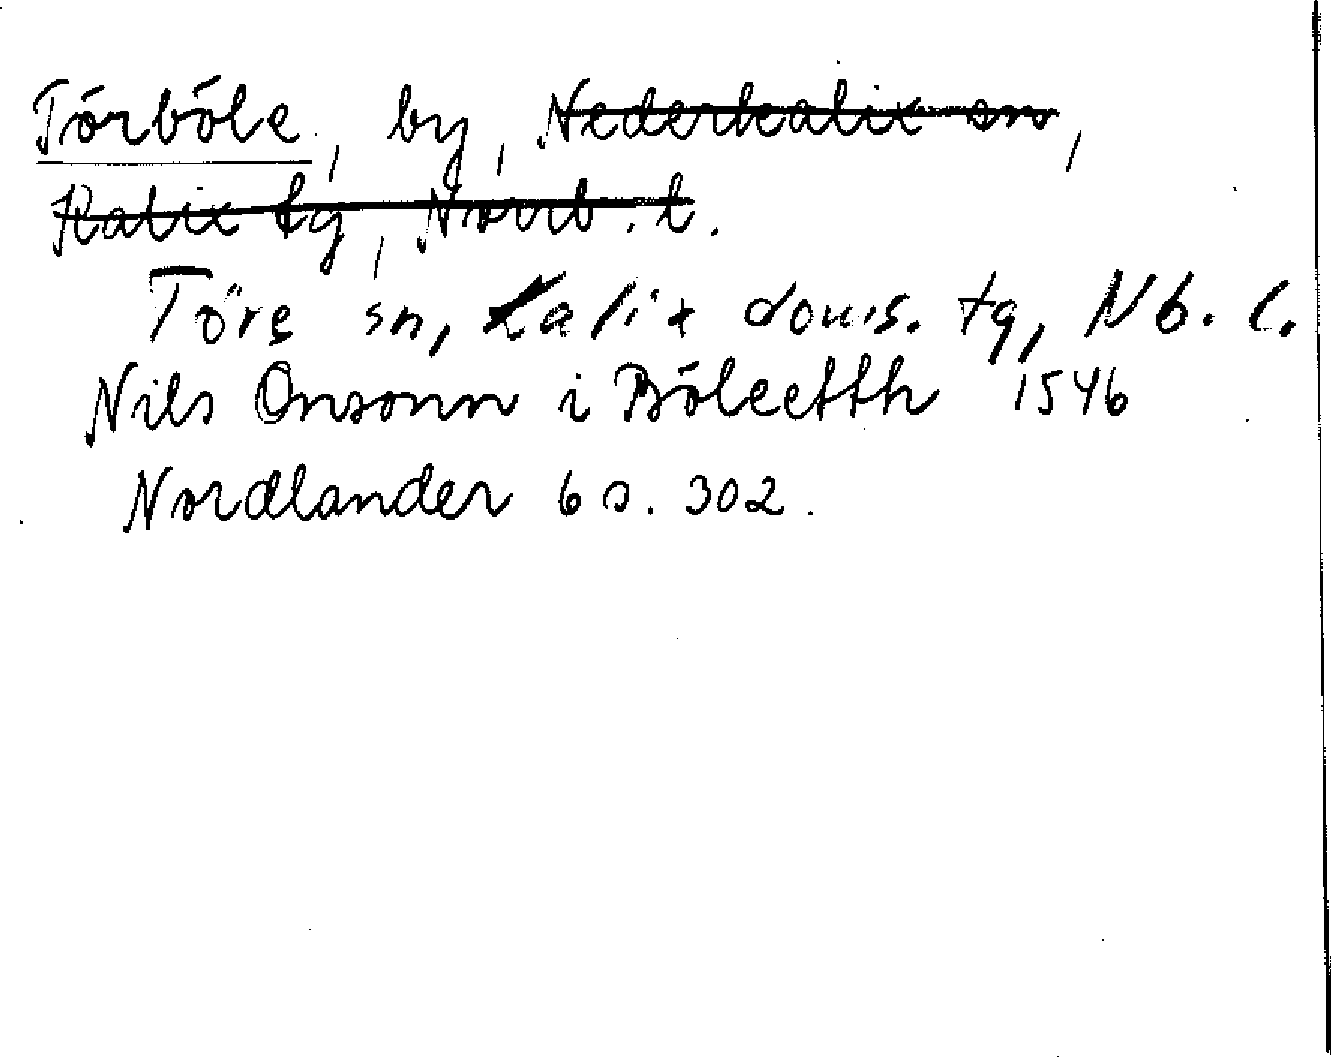 Törböle, by, Nederkalix sn,
Kalix tg, Norrb. l.
Töre sn, Kalix doms. tg, Nb. l.
Nils Onsonn i Böleetth 1546
Nordlander 6 s. 302.